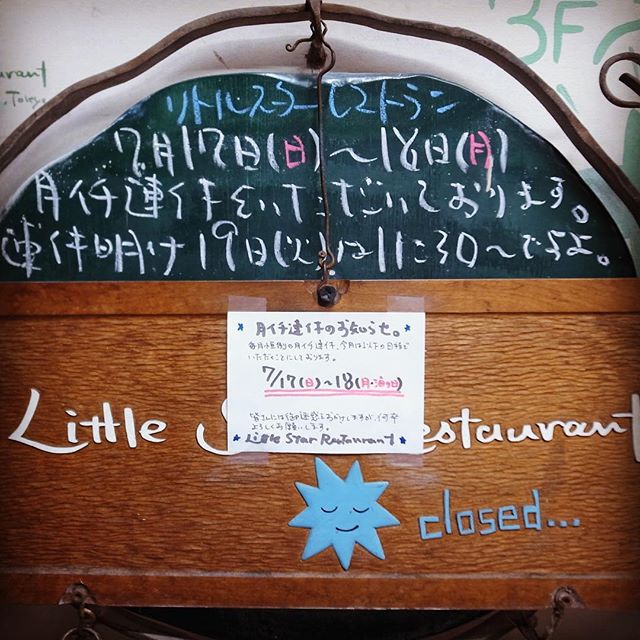 リトルスターレストラン
7月17日(日)～18日(月)
月イチ連休をいただいております。
連休明け19日(火)は11:30～ですよ。
月イチ連休のお知らせ。
毎月恒例の月イチ連休、今月は以下の日程で
いただくことにしております。
7/17(日)～18(月・海の日)
皆さんには御迷惑をおかけしますが、何卒
よろしくお願いします。
Little Star Restaurant
Little S estaurant
closed...
3F
urant
, Tokyo